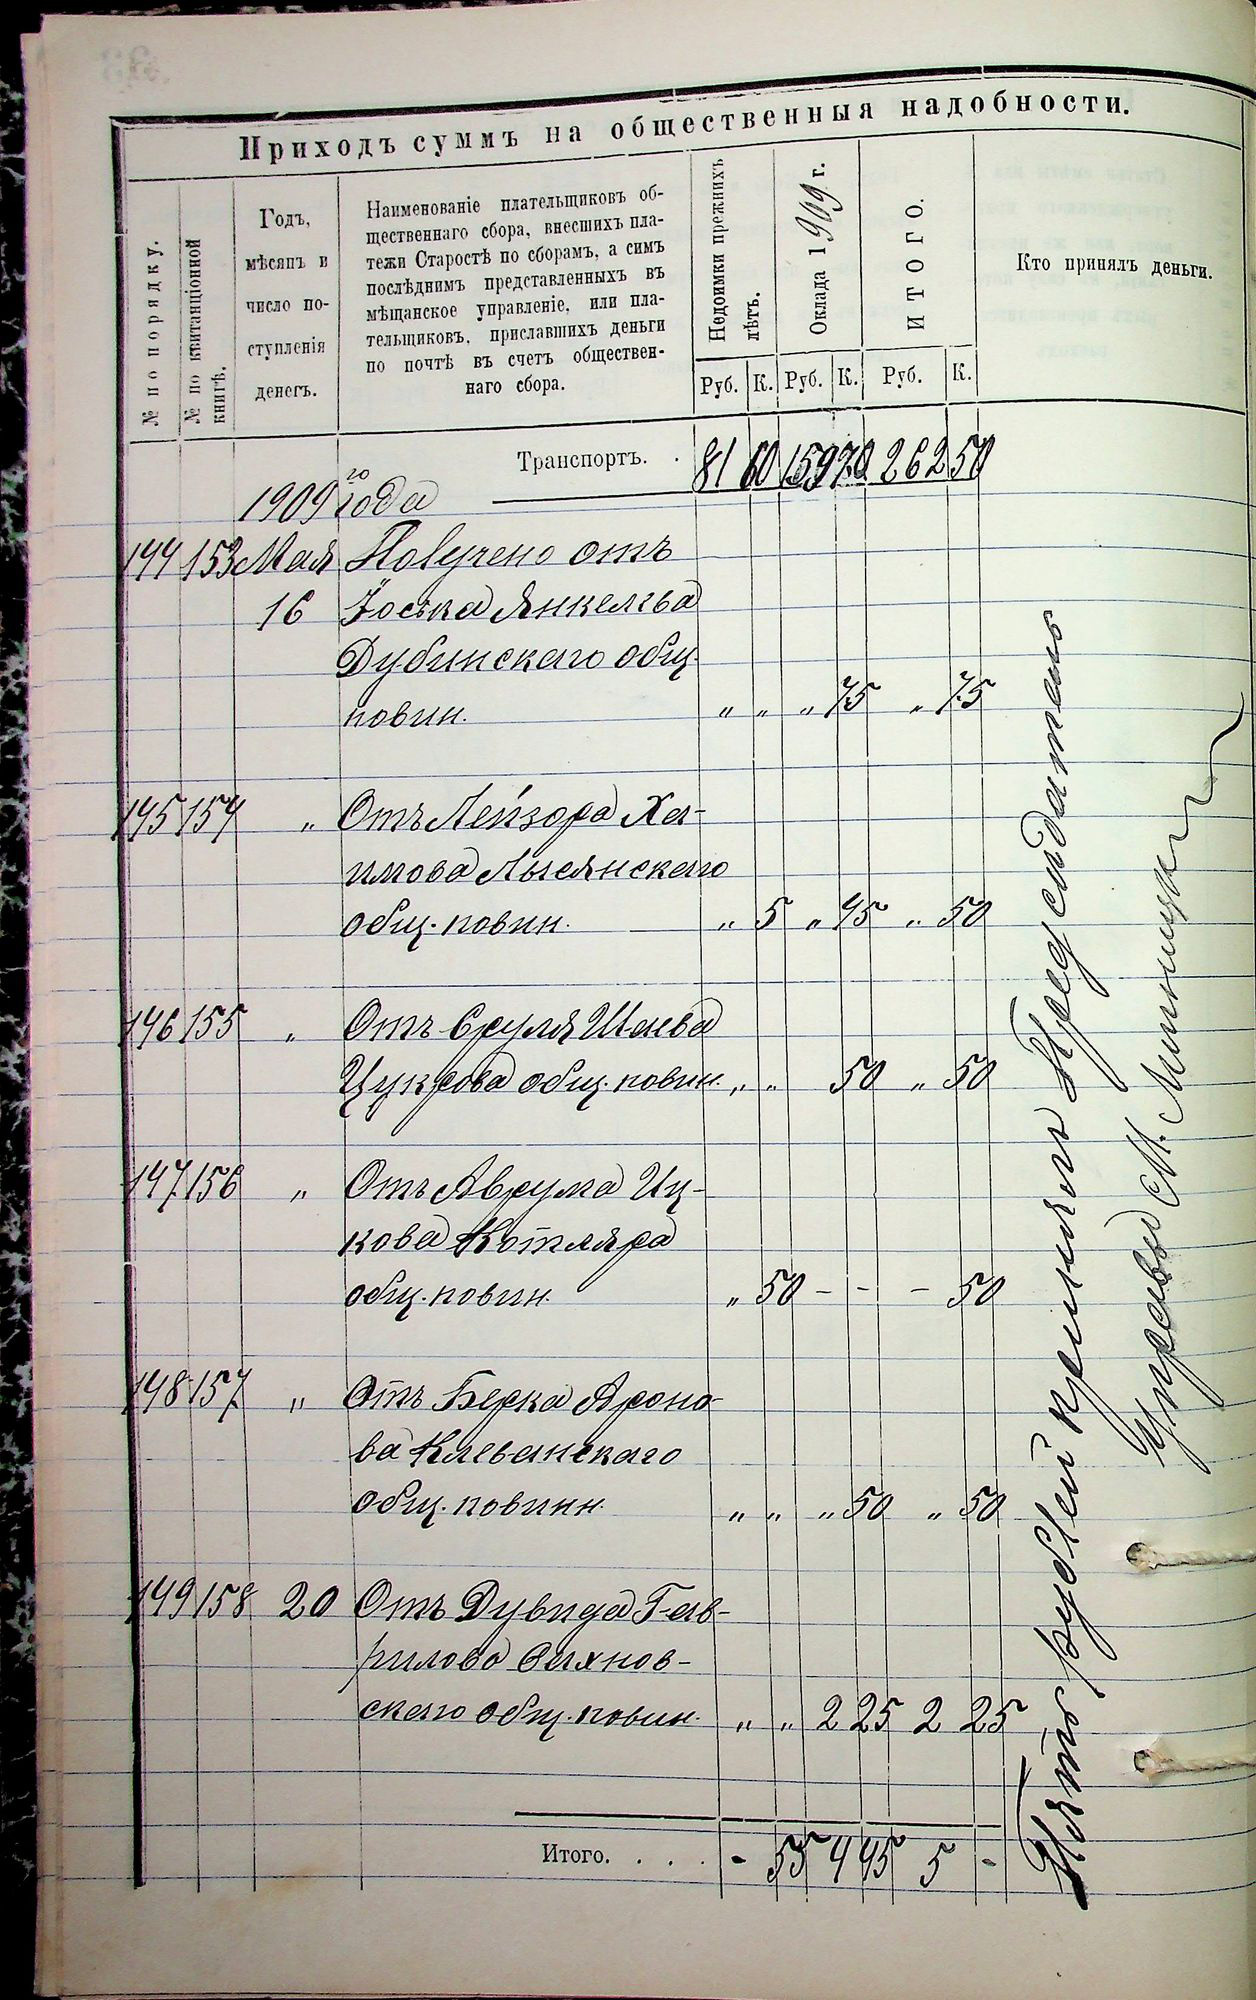 Приходъ суммъ на общественныя надобности.
№ по порядку.
№ по квитанціонной книгѣ.
Годъ,
мѣсяцъ и
число по-
ступленія
денегъ.
Наименованіе плательщиковъ об-
щественнаго сбора, внесшихъ пла-
тежи Старостѣ по сборамъ, а симъ
послѣднимъ представленныхъ въ
мѣщанское управленіе, или пла-
тельщиковъ, приславшихъ деньги
по почтѣ въ счетъ обществен-
наго сбора.
Недоимки прежнихъ лѣтъ.
Оклада 1909 г.
ИТОГО.
Кто принялъ деньги.
Руб. К. Руб. К. Руб. К.
Транспортъ. . 81 60 159 70 262 50
1909го года
144 153 Мая Получено отъ
16 Іоська Янкелева
Дубинскаго общ.
повин. " " " 75 " 75
145 154 " Отъ Лейзора Ха-
имова Лысянскаго
общ. повин. " 5 " 45 " 50
146 155 " Отъ Сруля Шаева
Цукрова общ. повин. " " 50 " 50
147 156 " Отъ Аврума Иц-
кова Котляра
общ. повин. " 50 - - - 50
148 157 " Отъ Берка Ароно-
ва Клеванскаго
общ. повинн. " " " 50 " 50
149 158 20 Отъ Дувида Гав-
рилова Сихнов-
скаго общ. повин. " " 2 25 2 25
Итого. . . . . - 55 4 45 5 -
Пять рублей принялъ Предсидатель
Управы М.